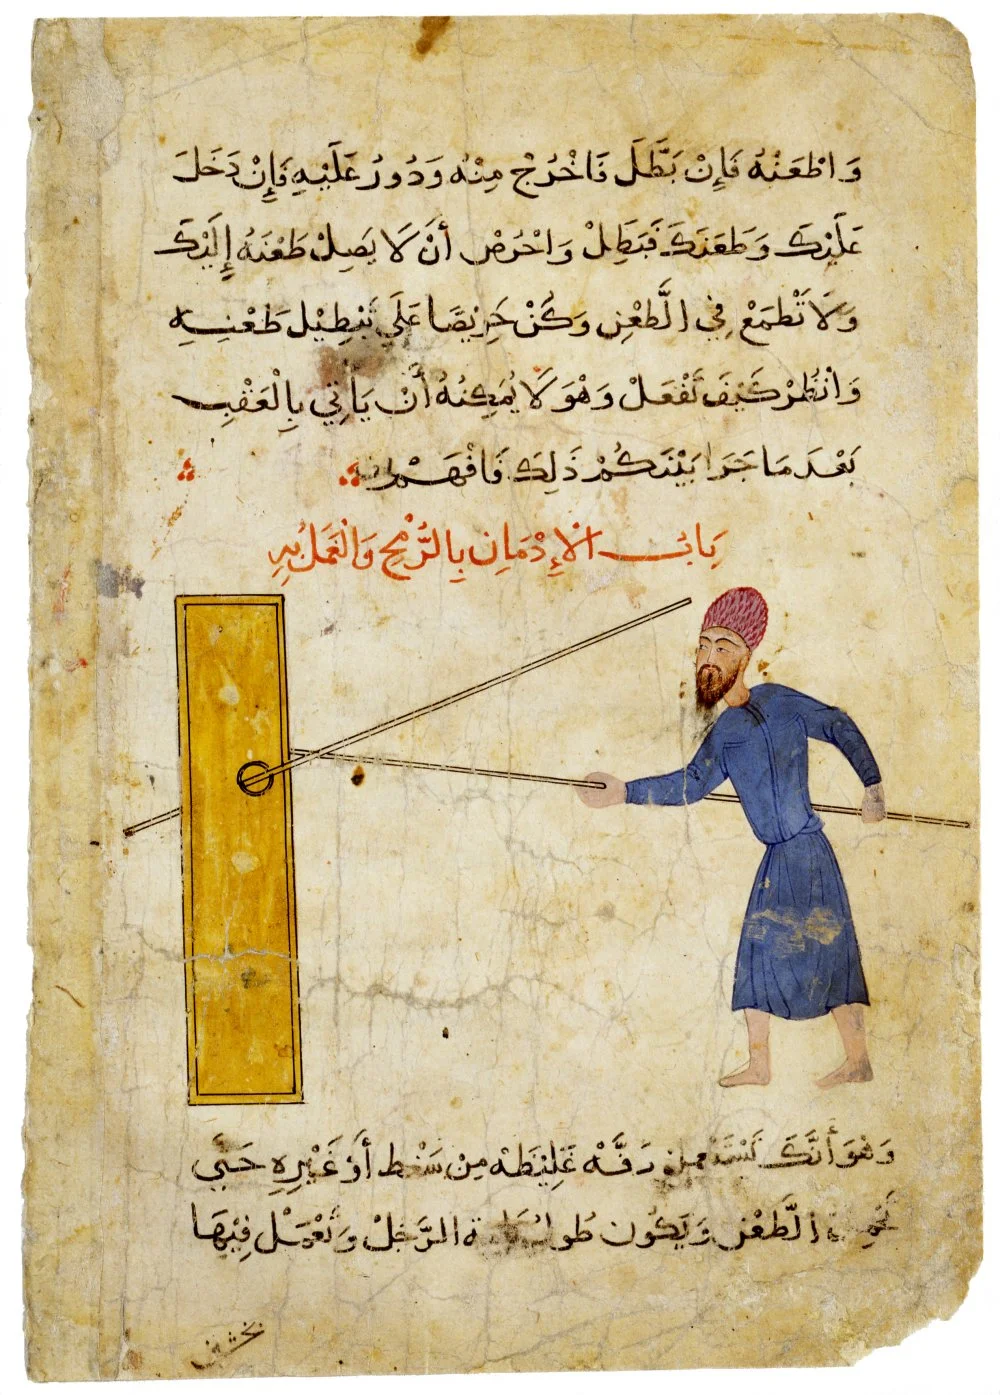 وَاطْعَنْهُ فَإِنْ بَطَّلَ فَاخْرُجْ مِنْهُ وَدُورُ عَلَيْهِ فَإِنْ دَخَلَ
عَلَيْكَ وَطَعَنَكَ فَبَطِلْ وَاحْرُصْ أَنْ لَا يَصِلْ طَعْنَهُ إِلَيْكَ
وَلَا تَطْمَعْ فِي الطَّعْنِ وَكُنْ حَرِيْصًا عَلَي تَبْطِيْل طَعْنِهِ
وَانْظُرْ كَيْفَ تَفْعَلْ وَهْوَ لَا يُمَكِنُهُ أَنْ يَأْتِي بِالْعَقْبِ
بَعْدَ مَا جَرَا بَيْنَكُمْ ذَلِكَ فَافْهَمْ
بَابُ الْإِدْمَانِ بِالرُّمْحِ وَالْعَمَلُ بِهِ
وَهْوَ أَنَّكَ تَسْتَعمل دَفَّهْ غَلِيْظَهْ مِنْ سَنْط أَوْ غَيْرِهِ حَتَّى
الطَّعْن وَيَكُون طُولهَا الرَّجُلْ وَتَعْمَلْ فِيْهَا